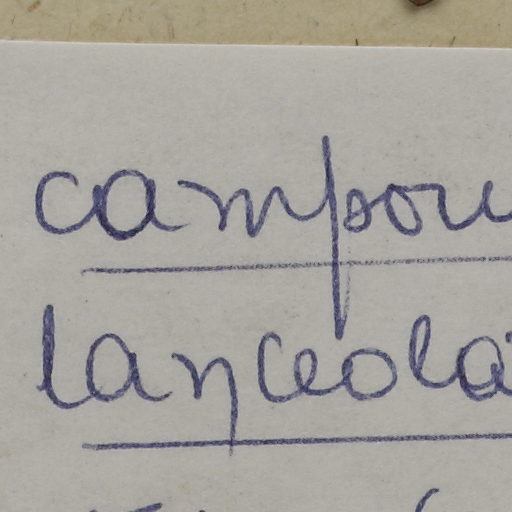 campou
lanceola